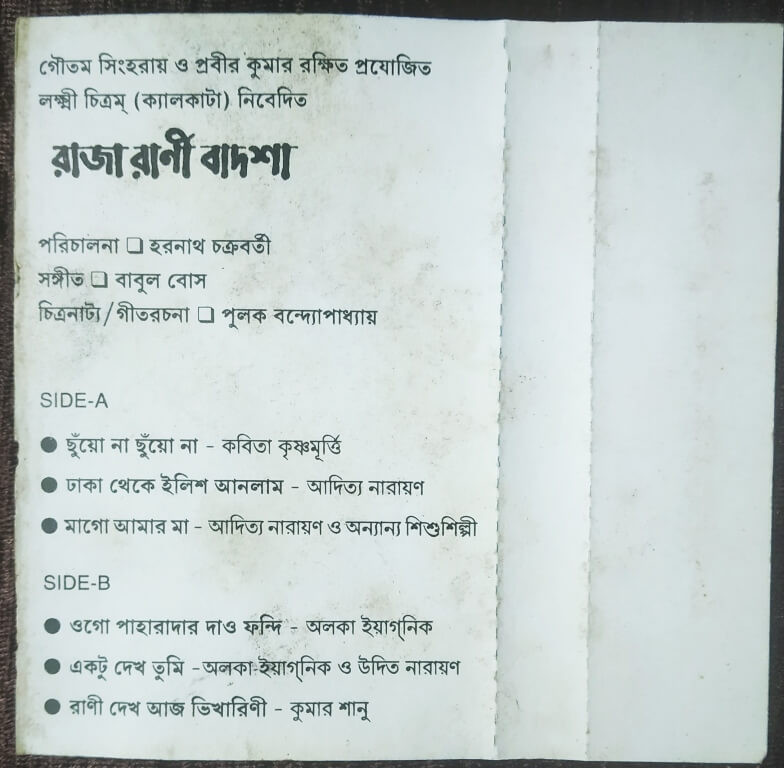 গৌতম সিংহরায় ও প্রবীর কুমার রক্ষিত প্রযোজিত
লক্ষ্মী চিত্রম্ (ক্যালকাটা) নিবেদিত
রাজা রাণী বাদশা
পরিচালনা □ হরনাথ চক্রবর্তী
সঙ্গীত □ বাবুল বোস
চিত্রনাট্য/গীতরচনা □ পুলক বন্দ্যোপাধ্যায়
SIDE-A
● ছুঁয়ো না ছুঁয়ো না - কবিতা কৃষ্ণমূর্ত্তি
● ঢাকা থেকে ইলিশ আনলাম - আদিত্য নারায়ণ
● মাগো আমার মা - আদিত্য নারায়ণ ও অন্যান্য শিশুশিল্পী
SIDE-B
● ওগো পাহারাদার দাও ফন্দি - অলকা ইয়াগ্‌নিক
● একটু দেখ তুমি - অলকা ইয়াগ্‌নিক ও উদিত নারায়ণ
● রাণী দেখ আজ ভিখারিণী - কুমার শানু